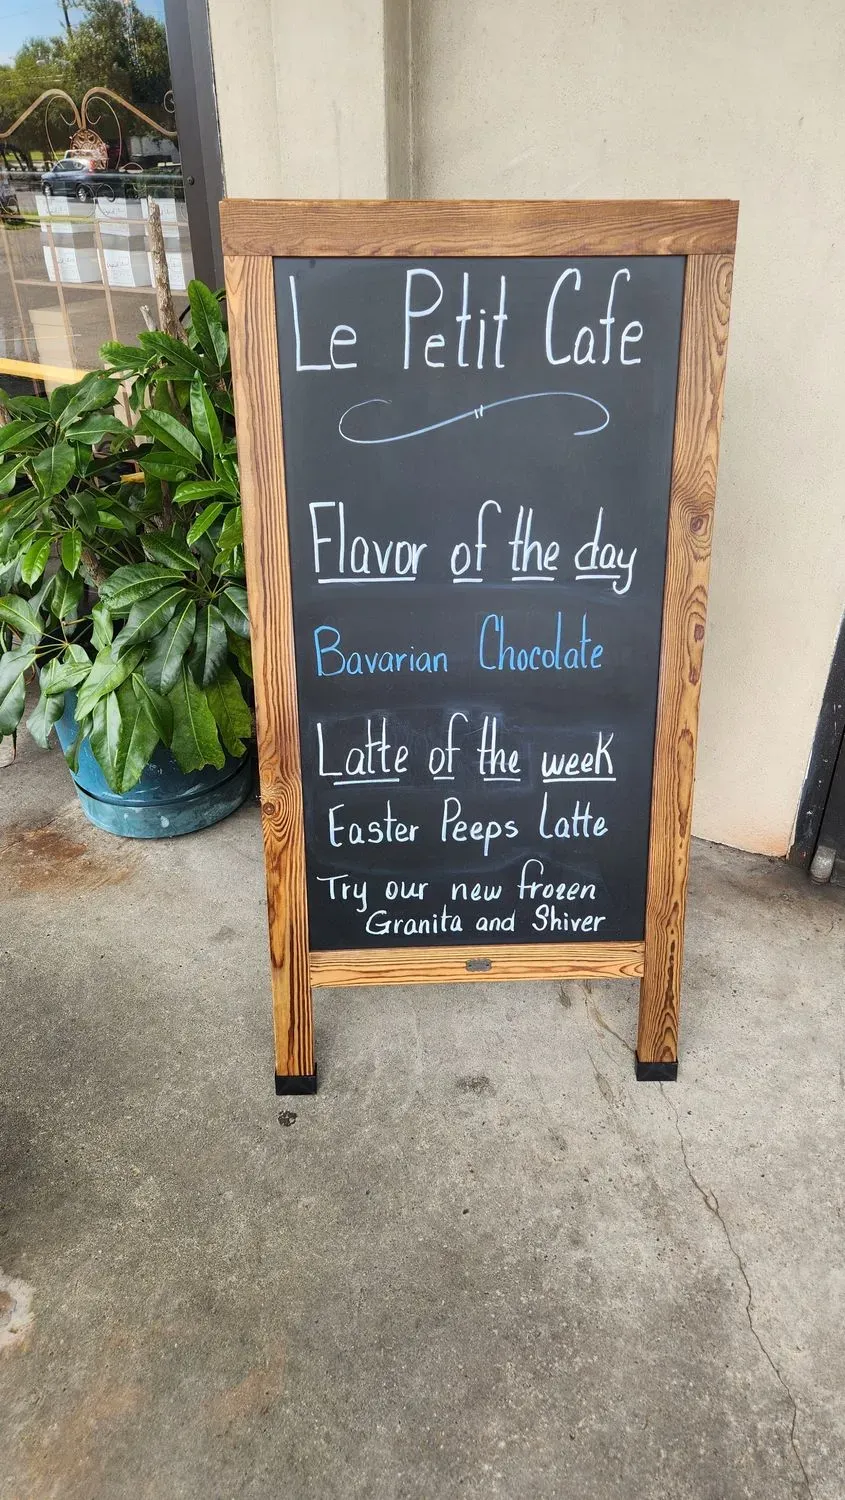 Le Petit Cafe
Flavor of the day
Bavarian Chocolate
Latte of the week
Easter Peeps Latte
Try our new frozen
Granita and Shiver